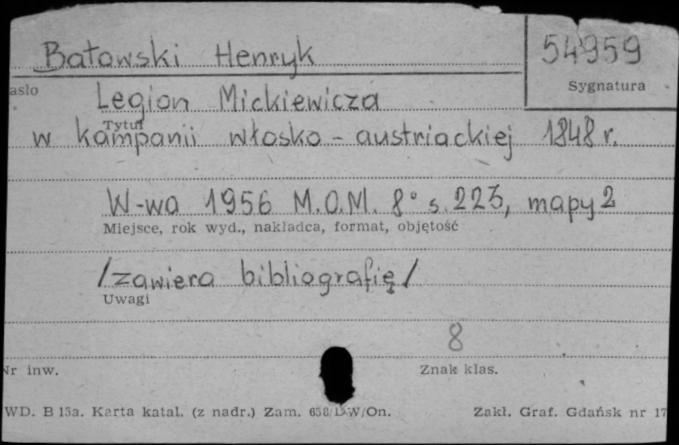 Batowski Henryk 54959
asło Sygnatura
Legion Mickiewicza
Tytuł
w kampanii włosko - austriackiej 1848 r.
W-wa 1956 M.O.M. 8° s. 223, mapy 2
Miejsce, rok wyd., nakładca, format, objętość
/zawiera bibliografię/
Uwagi
8
Nr inw. Znak klas.
WD. B 15a. Karta katal. (z nadr.) Zam. W/On. Zakł. Graf. Gdańsk nr 17